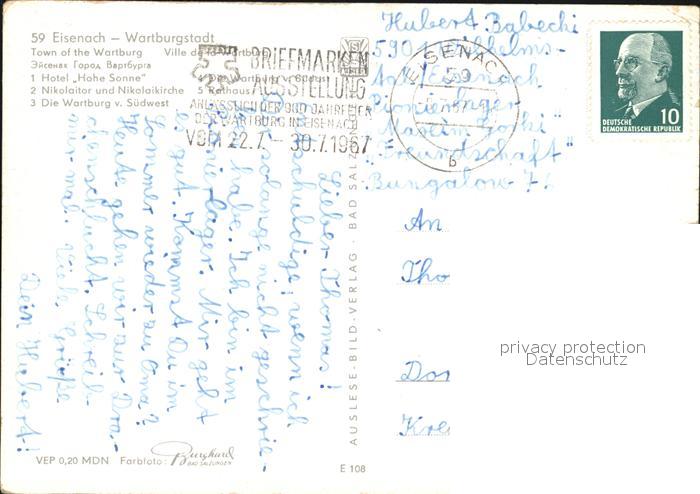 59 Eisenach – Wartburgstadt
Town of the Wartburg Ville de la Wartburg
Эйсенах Город Вартбурга
1 Hotel „Hohe Sonne"
2 Nikolaitor und Nikolaikirche
3 Die Wartburg v. Südwest
4 Die Wartburg v.
5 Rathaus
BRIEFMARKEN
AUSSTELLUNG
ANLÄSSLICH DER 900 JAHRFEIER
DER WARTBURG IN EISENACH
VOM 22.7. - 30.7.1967
EISENACH
b
59
Hubert Babecki
5901 Wilhelms-
Eisenach
Pionierlager
"Maxim Gorki"
"Freundschaft"
Bungalow 72
DEUTSCHE
DEMOKRATISCHE REPUBLIK
10
Lieber Thomas!
entschuldige, wenn ich
so lange nicht geschrie-
habe. Ich bin im
Pionierlager. Mir geht
es gut. Kommst Du im
Sommer wieder zu Oma?
Heute gehen wir zur Dra-
chenschlucht. Schreib
mir mal. Viele Grüße
Dein Hubert!
An
Tho
Dor
Kre
privacy protection
Datenschutz
AUSLESE-BILD-VERLAG · BAD SALZ
VEP 0,20 MDN Farbfoto: Burghard
BAD SALZUNGEN
E 108